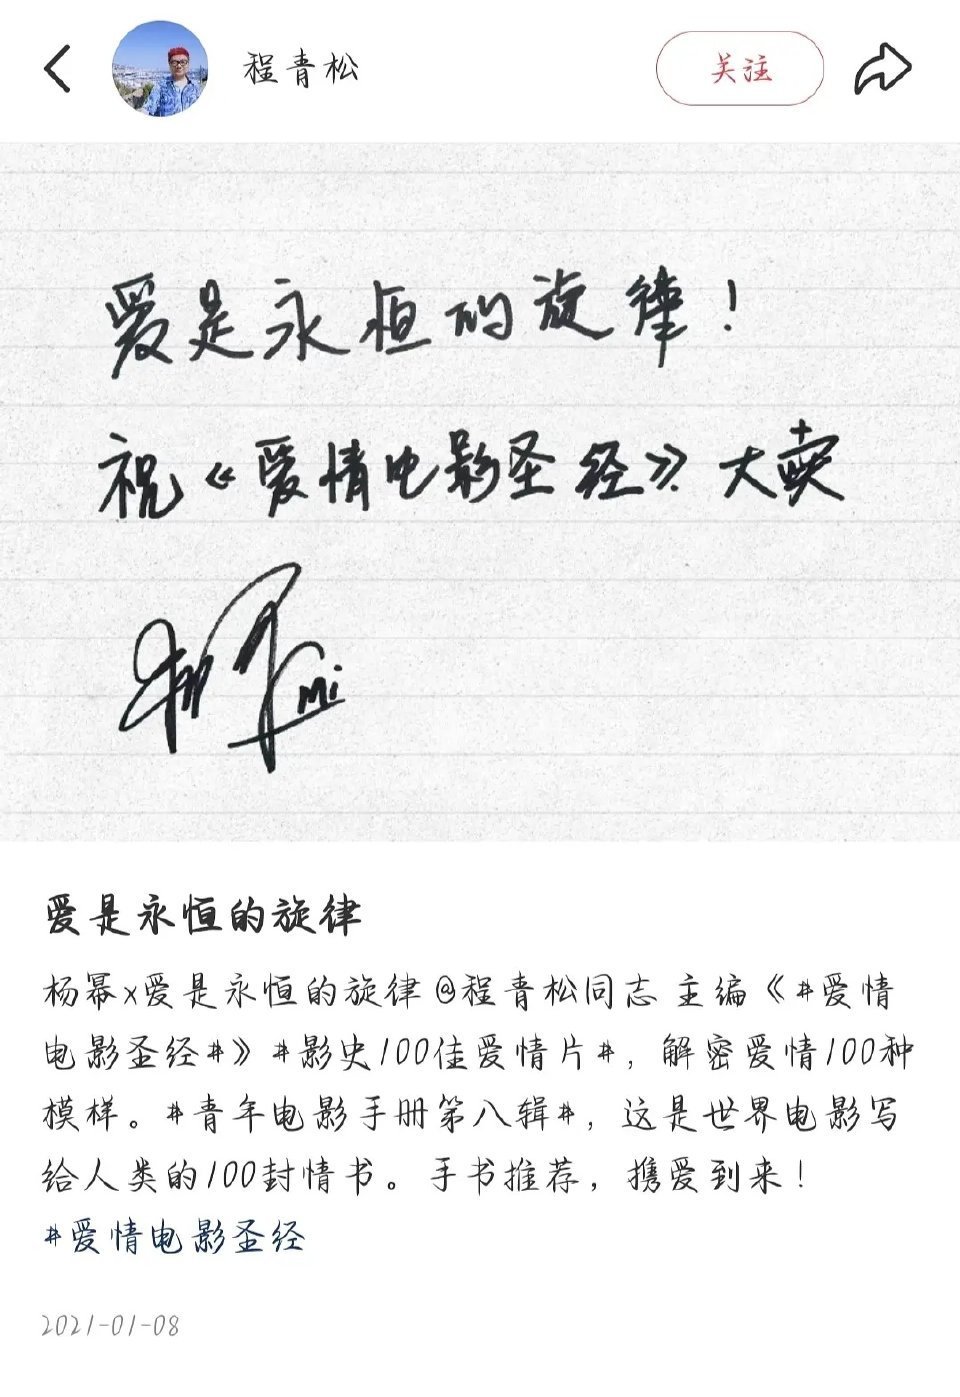 程青松
关注
爱是永恒的旋律！
祝《爱情电影圣经》大卖
mi
爱是永恒的旋律
杨幂x爱是永恒的旋律 @程青松同志 主编《#爱情
电影圣经#》#影史100佳爱情片#，解密爱情100种
模样。#青年电影手册第八辑#，这是世界电影写
给人类的100封情书。手书推荐，携爱到来！
#爱情电影圣经
2021-01-08